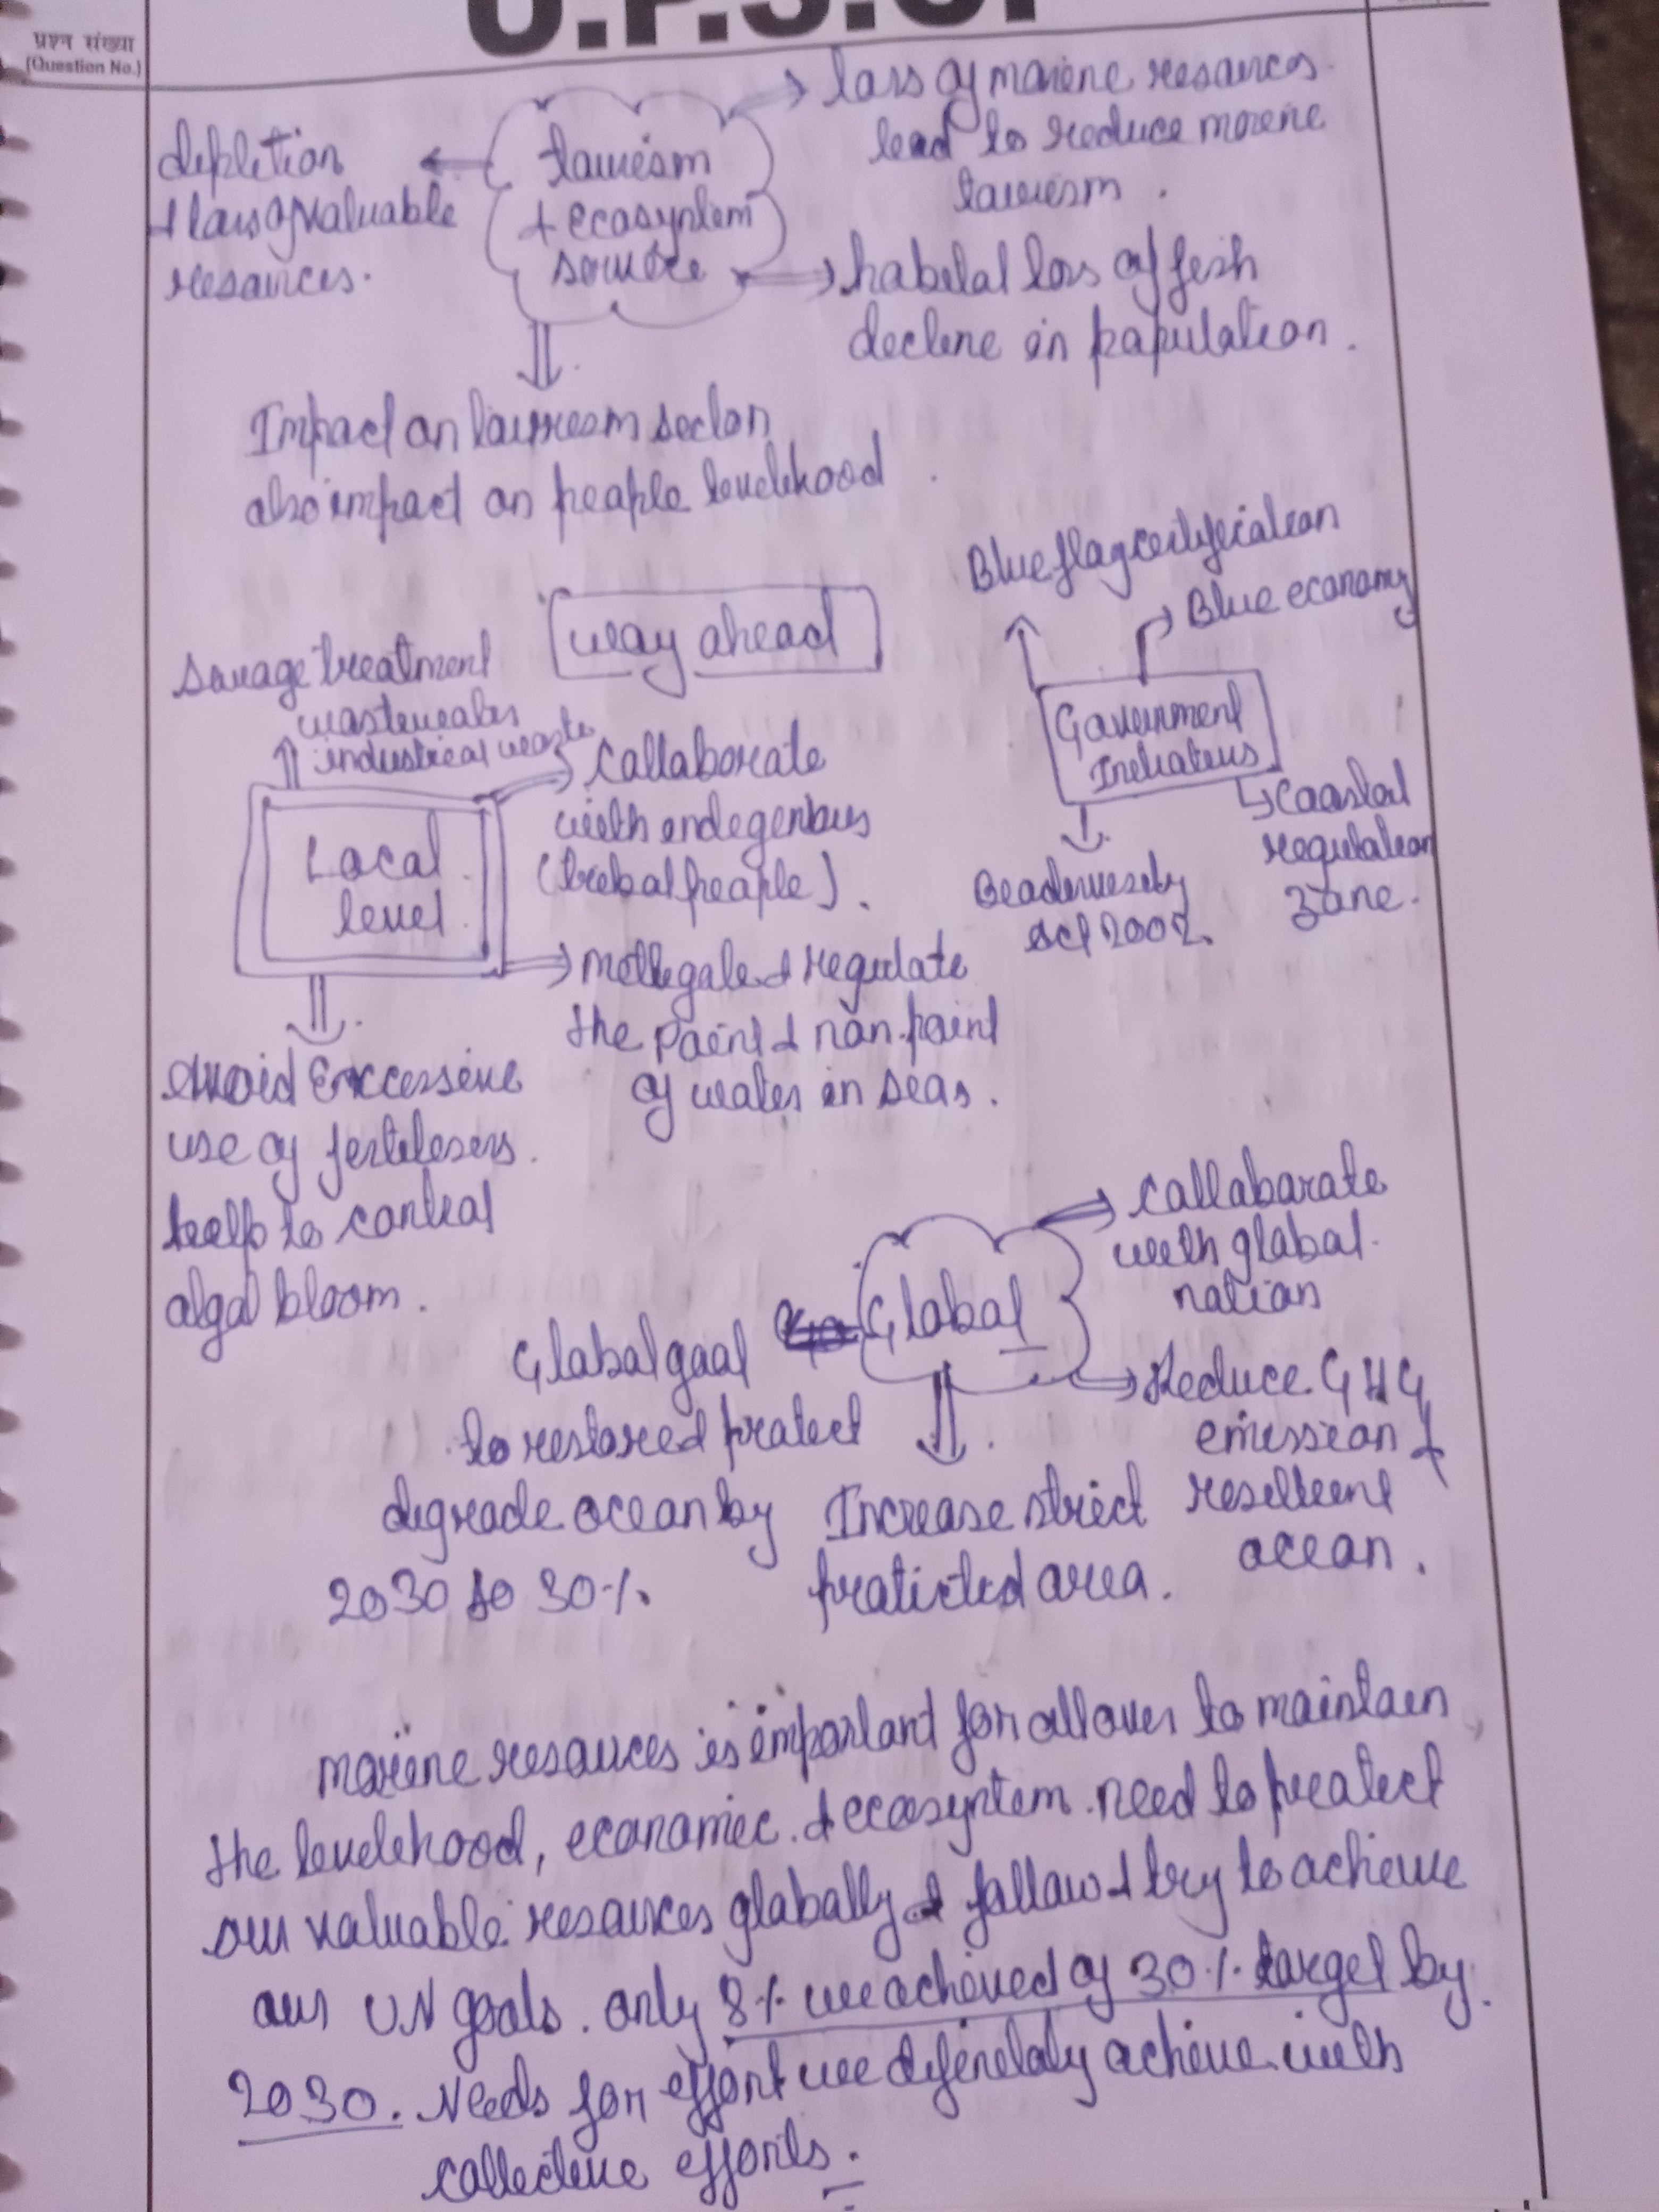 प्रश्न संख्या
(Question No.)
U.P.S.C.
tourism
+ ecosystem
source
depletion
+ loss of valuable
resources.
loss of marine resources
lead to reduce marine
tourism.
habital loss of fish
decline in population.
Impact on tourism sector
also impact on people livelihood
way ahead
Blue flag certification
Blue economy
Government
Initiatives
Coastal
regulation
zone.
Act 2002.
Sewage treatment
wastewater
industrical waste
Local
level
Collaborate
with indegenous
(tribal people).
mitigate & regulate
the point & non-point
of water in seas.
Avoid Excessive
use of fertilisers.
help to control
algal bloom.
Global
Collaborate
with global
nation
reduce GHG
emission &
resilient
ocean.
Increase strict
protected area.
Global goal
to restored protect
degrade ocean by
2030 to 30%.
marine resources is important for all over to maintain
the livelihood, economic & ecosystem. need to protect
our valuable resources globally & follow & try to achieve
our UN goals. only 8% we achieved of 30% target by
2030. Needs for effort we definitely achieve with
collective efforts.